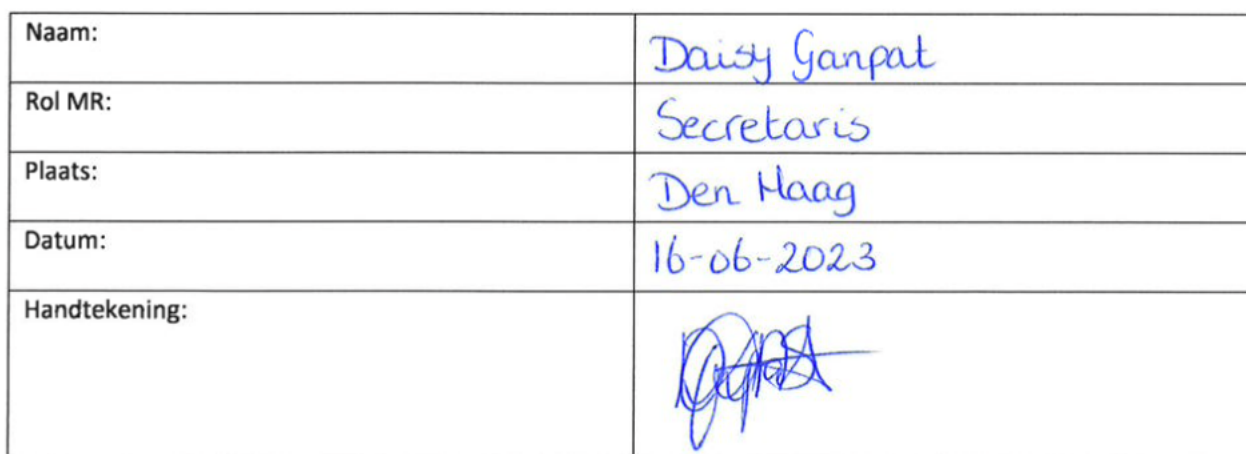 Naam: Daisy Ganpat
Rol MR: Secretaris
Plaats: Den Haag
Datum: 16-06-2023
Handtekening: